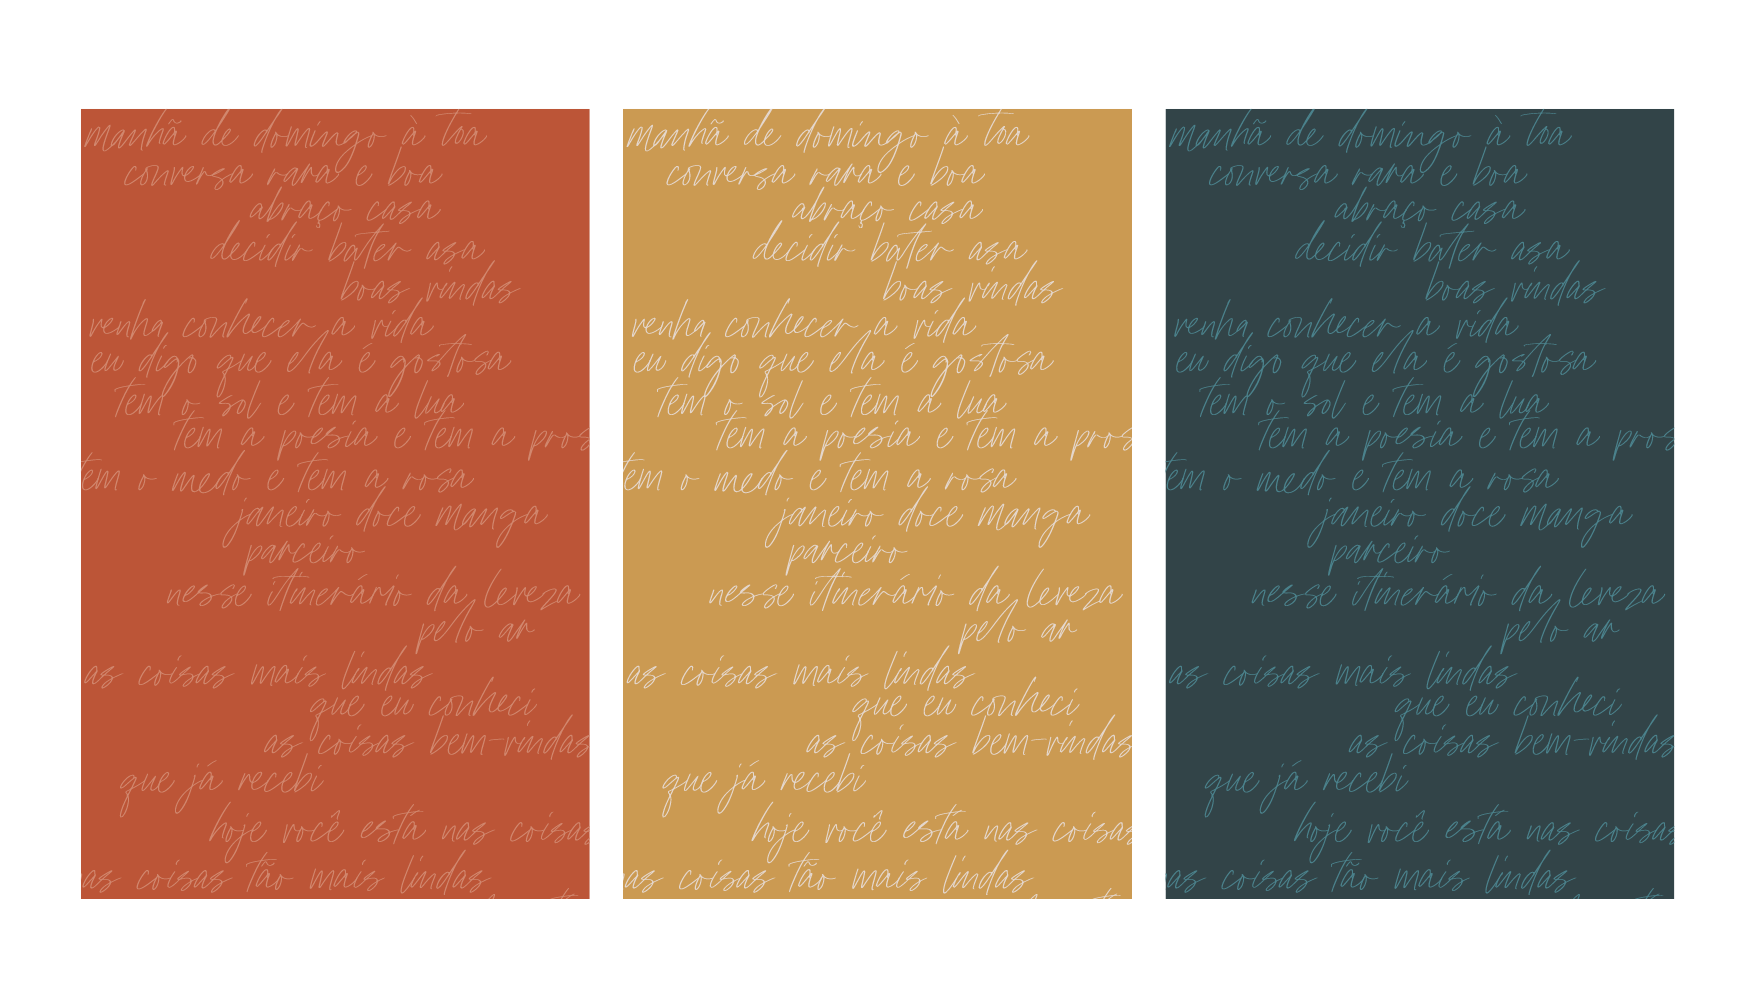 manhã de domingo à toa
conversa rara e boa
abraço casa
decidir bater asa
boas vindas
venha conhecer a vida
eu digo que ela é gostosa
tem o sol e tem a lua
tem a poesia e tem a pros
tem o medo e tem a rosa
janeiro doce manga
parceiro
nesse itinerário da leveza
pelo ar
as coisas mais lindas
que eu conheci
as coisas bem-vindas
que já recebi
hoje você está nas coisas
as coisas tão mais lindas
manhã de domingo à toa
conversa rara e boa
abraço casa
decidir bater asa
boas vindas
venha conhecer a vida
eu digo que ela é gostosa
tem o sol e tem a lua
tem a poesia e tem a pros
tem o medo e tem a rosa
janeiro doce manga
parceiro
nesse itinerário da leveza
pelo ar
as coisas mais lindas
que eu conheci
as coisas bem-vindas
que já recebi
hoje você está nas coisas
as coisas tão mais lindas
manhã de domingo à toa
conversa rara e boa
abraço casa
decidir bater asa
boas vindas
venha conhecer a vida
eu digo que ela é gostosa
tem o sol e tem a lua
tem a poesia e tem a pros
tem o medo e tem a rosa
janeiro doce manga
parceiro
nesse itinerário da leveza
pelo ar
as coisas mais lindas
que eu conheci
as coisas bem-vindas
que já recebi
hoje você está nas coisas
as coisas tão mais lindas